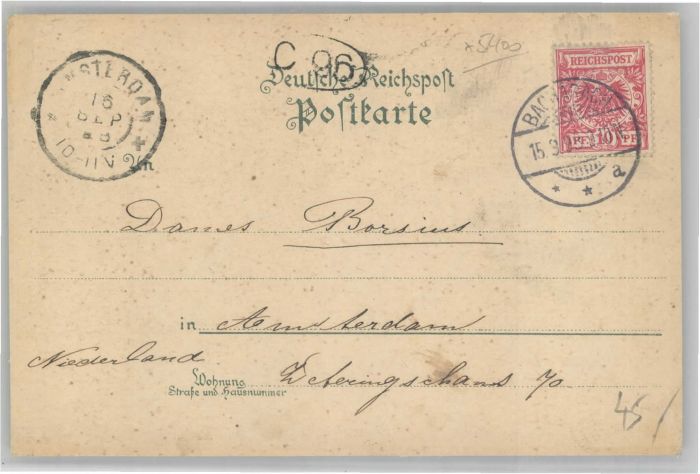 C 96
x 5400
Deutsche Reichspost
Postkarte
AMSTERDAM
16
SEP
98
10-11V
REICHSPOST
10
PF
BACHARACH
15.9.
a
An
Dames Borsius
in Amsterdam
Niederland
Wohnung
Straße und Hausnummer
Weteringschans 70
45/